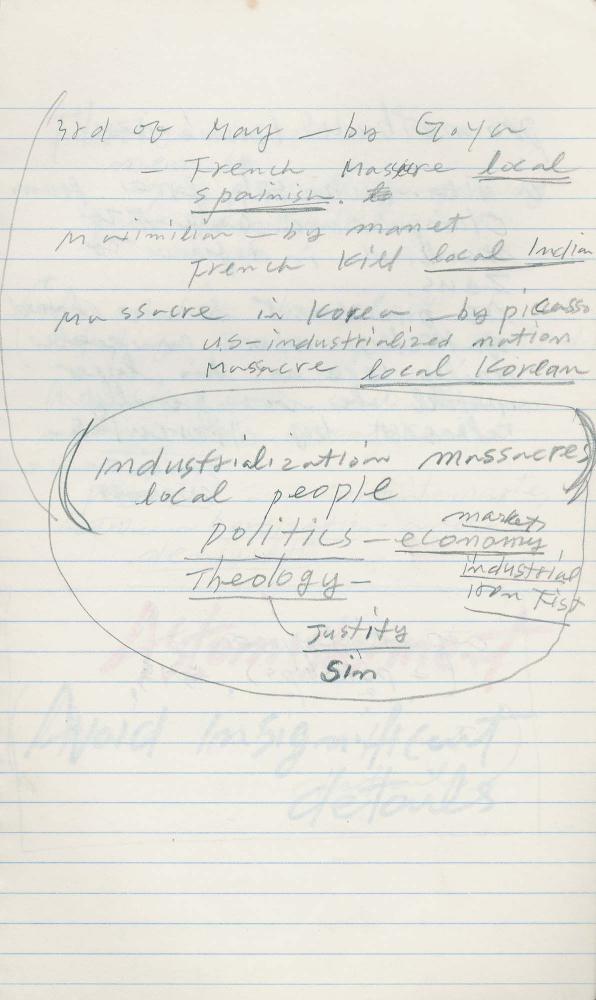 3rd of May — by Goya
— French Massacre local
spainish.
Maximilian — by manet
French kill local Indian
Massacre in Korea — by picasso
US-industrialized nation
Massacre local Korean
Industrialization massacres
local people
market
politics — economy
Theology — industrial
iron Fist
Justify
Sin
Avoid Insignificant
details